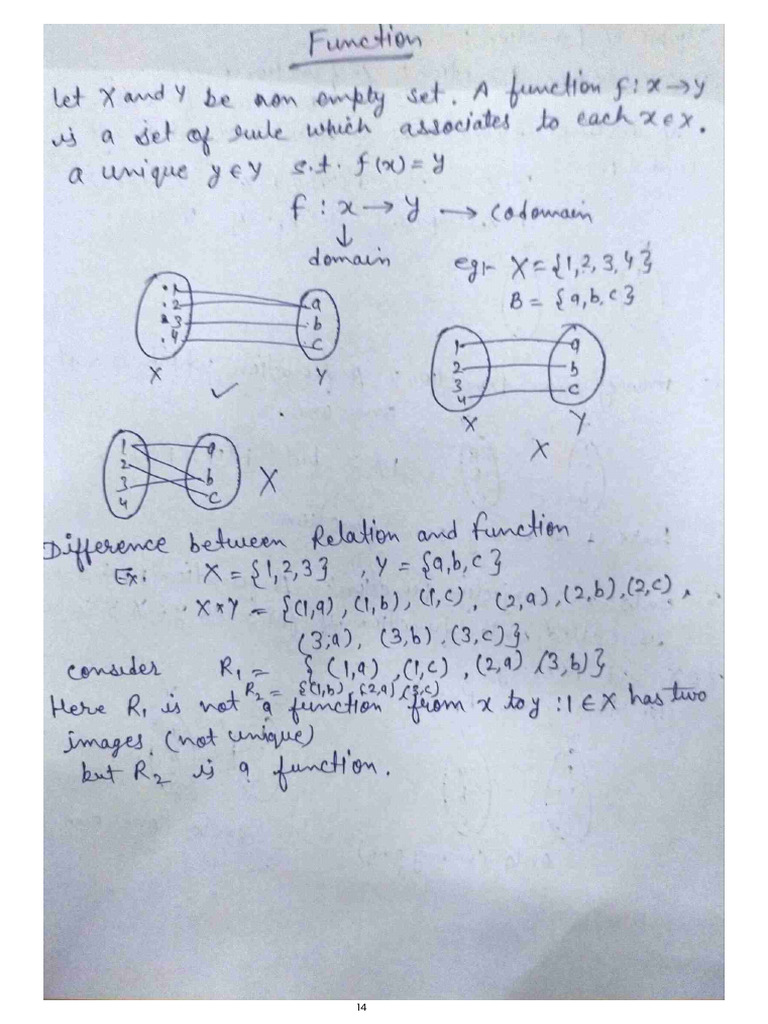 Function
Let X and Y be non empty set. A function f : x → y
is a set of rule which associates to each x ∈ x.
a unique y ∈ Y s.t. f(x) = y
f : x → y → codomain
↓
domain
eg:- X = {1,2,3,4}
B = {a,b,c}
1 a
2 b
3 c
4
X Y
✓
1 a
2 b
3 c
4
X Y
X
1 a
2 b
3 c
4
X
Difference between Relation and function
Ex: X = {1,2,3} , Y = {a,b,c}
X*Y = {(1,a), (1,b), (1,c), (2,a), (2,b), (2,c),
(3,a), (3,b), (3,c)}
consider R₁ = {(1,a), (1,c), (2,a), (3,b)}
R₂ = {(1,b), (2,a), (3,c)}
Here R₁ is not a function from x to y : 1 ∈ X has two
images. (not unique)
but R₂ is a function.
14